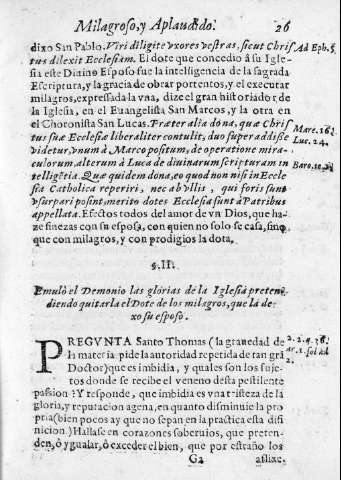 Milagroso, y Aplaudido. 26
dixo San Pablo. Viri diligite vxores vestras, sicut Chris
tus dilexit Ecclesiam. El dote que concedio à su Igle-
sia este Diuino Esposo fue la intelligencia de la sagrada
Escriptura, y la gracia de obrar portentos, y el executar
milagros, expressada la vna, dize el gran historiador de
la Iglesia, en el Euangelista San Marcos, y la otra en
el Choronista San Lucas. Præter alia dona, quæ Chris
tus suæ Ecclesiæ liberaliter contulit, duo superaddisse
videtur, vnum à Marco positum, de operatione mira-
culorum alterum à Luca de diuinarum scripturam in
telligētia. Quæ quidem dona, eo quod non nisi in Eccle
sia Catholica reperiri, nec ab vllis, qui foris sunt
vsurpari possint, merito dotes Ecclesiæ sunt à Patribus
appellata. Efectos todos del amor de vn Dios, que ha-
ze finezas con su esposa, con quien no solo se casa, sino
que con milagros, y con prodigios la dota.
Ad Eph. 5
Marc. 16.
Luc. 24.
§. II.
Emulò el Demonio las glorias de la Iglesia preten-
diendo quitarla el Dote de los milagros, que la de-
xo su esposo.
PREGVNTA Santo Thomas (la grauedad de
la materia pide la autoridad repetida de tan grã
Doctor) que es imbidia, y quales son los suje-
tos donde se recibe el veneno desta pestilente
passion? Y responde, que imbidia es vna tristeza de la
gloria, y reputacion agena, en quanto disminuie la pro
pria (bien pocos ay que no sepan en la practica esta difi
nicion) Hallase en corazones soberuios, que preten-
den, ò ygualar, ò exceder el bien, que por estraño los
G2 aflixe.